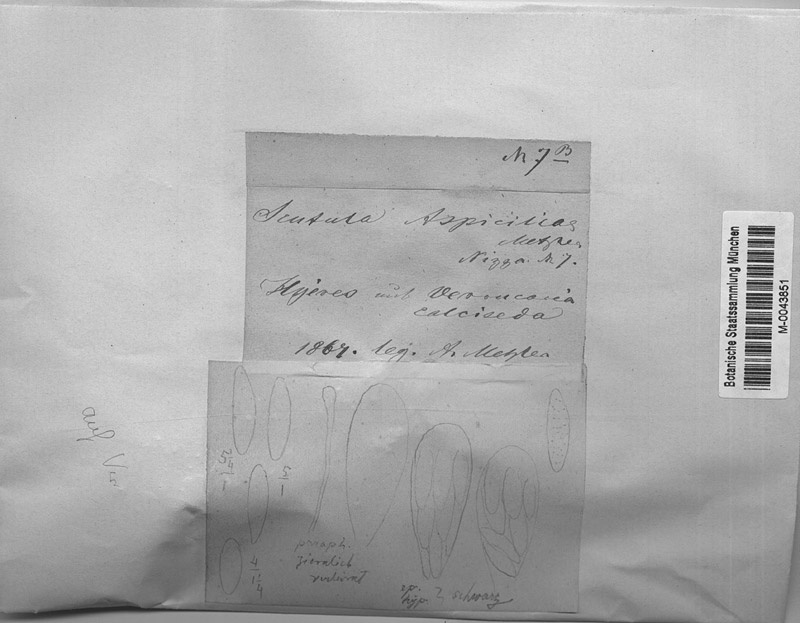 N. 7 B
Scutula Aspiciliae
Metzler
Nizza N. 7.
Hyères auf Verrucaria
calciseda
1867. leg. A. Metzler
auf
paraph.
ziemlich
schwarz
Botanische Staatssammlung München
M-0043851